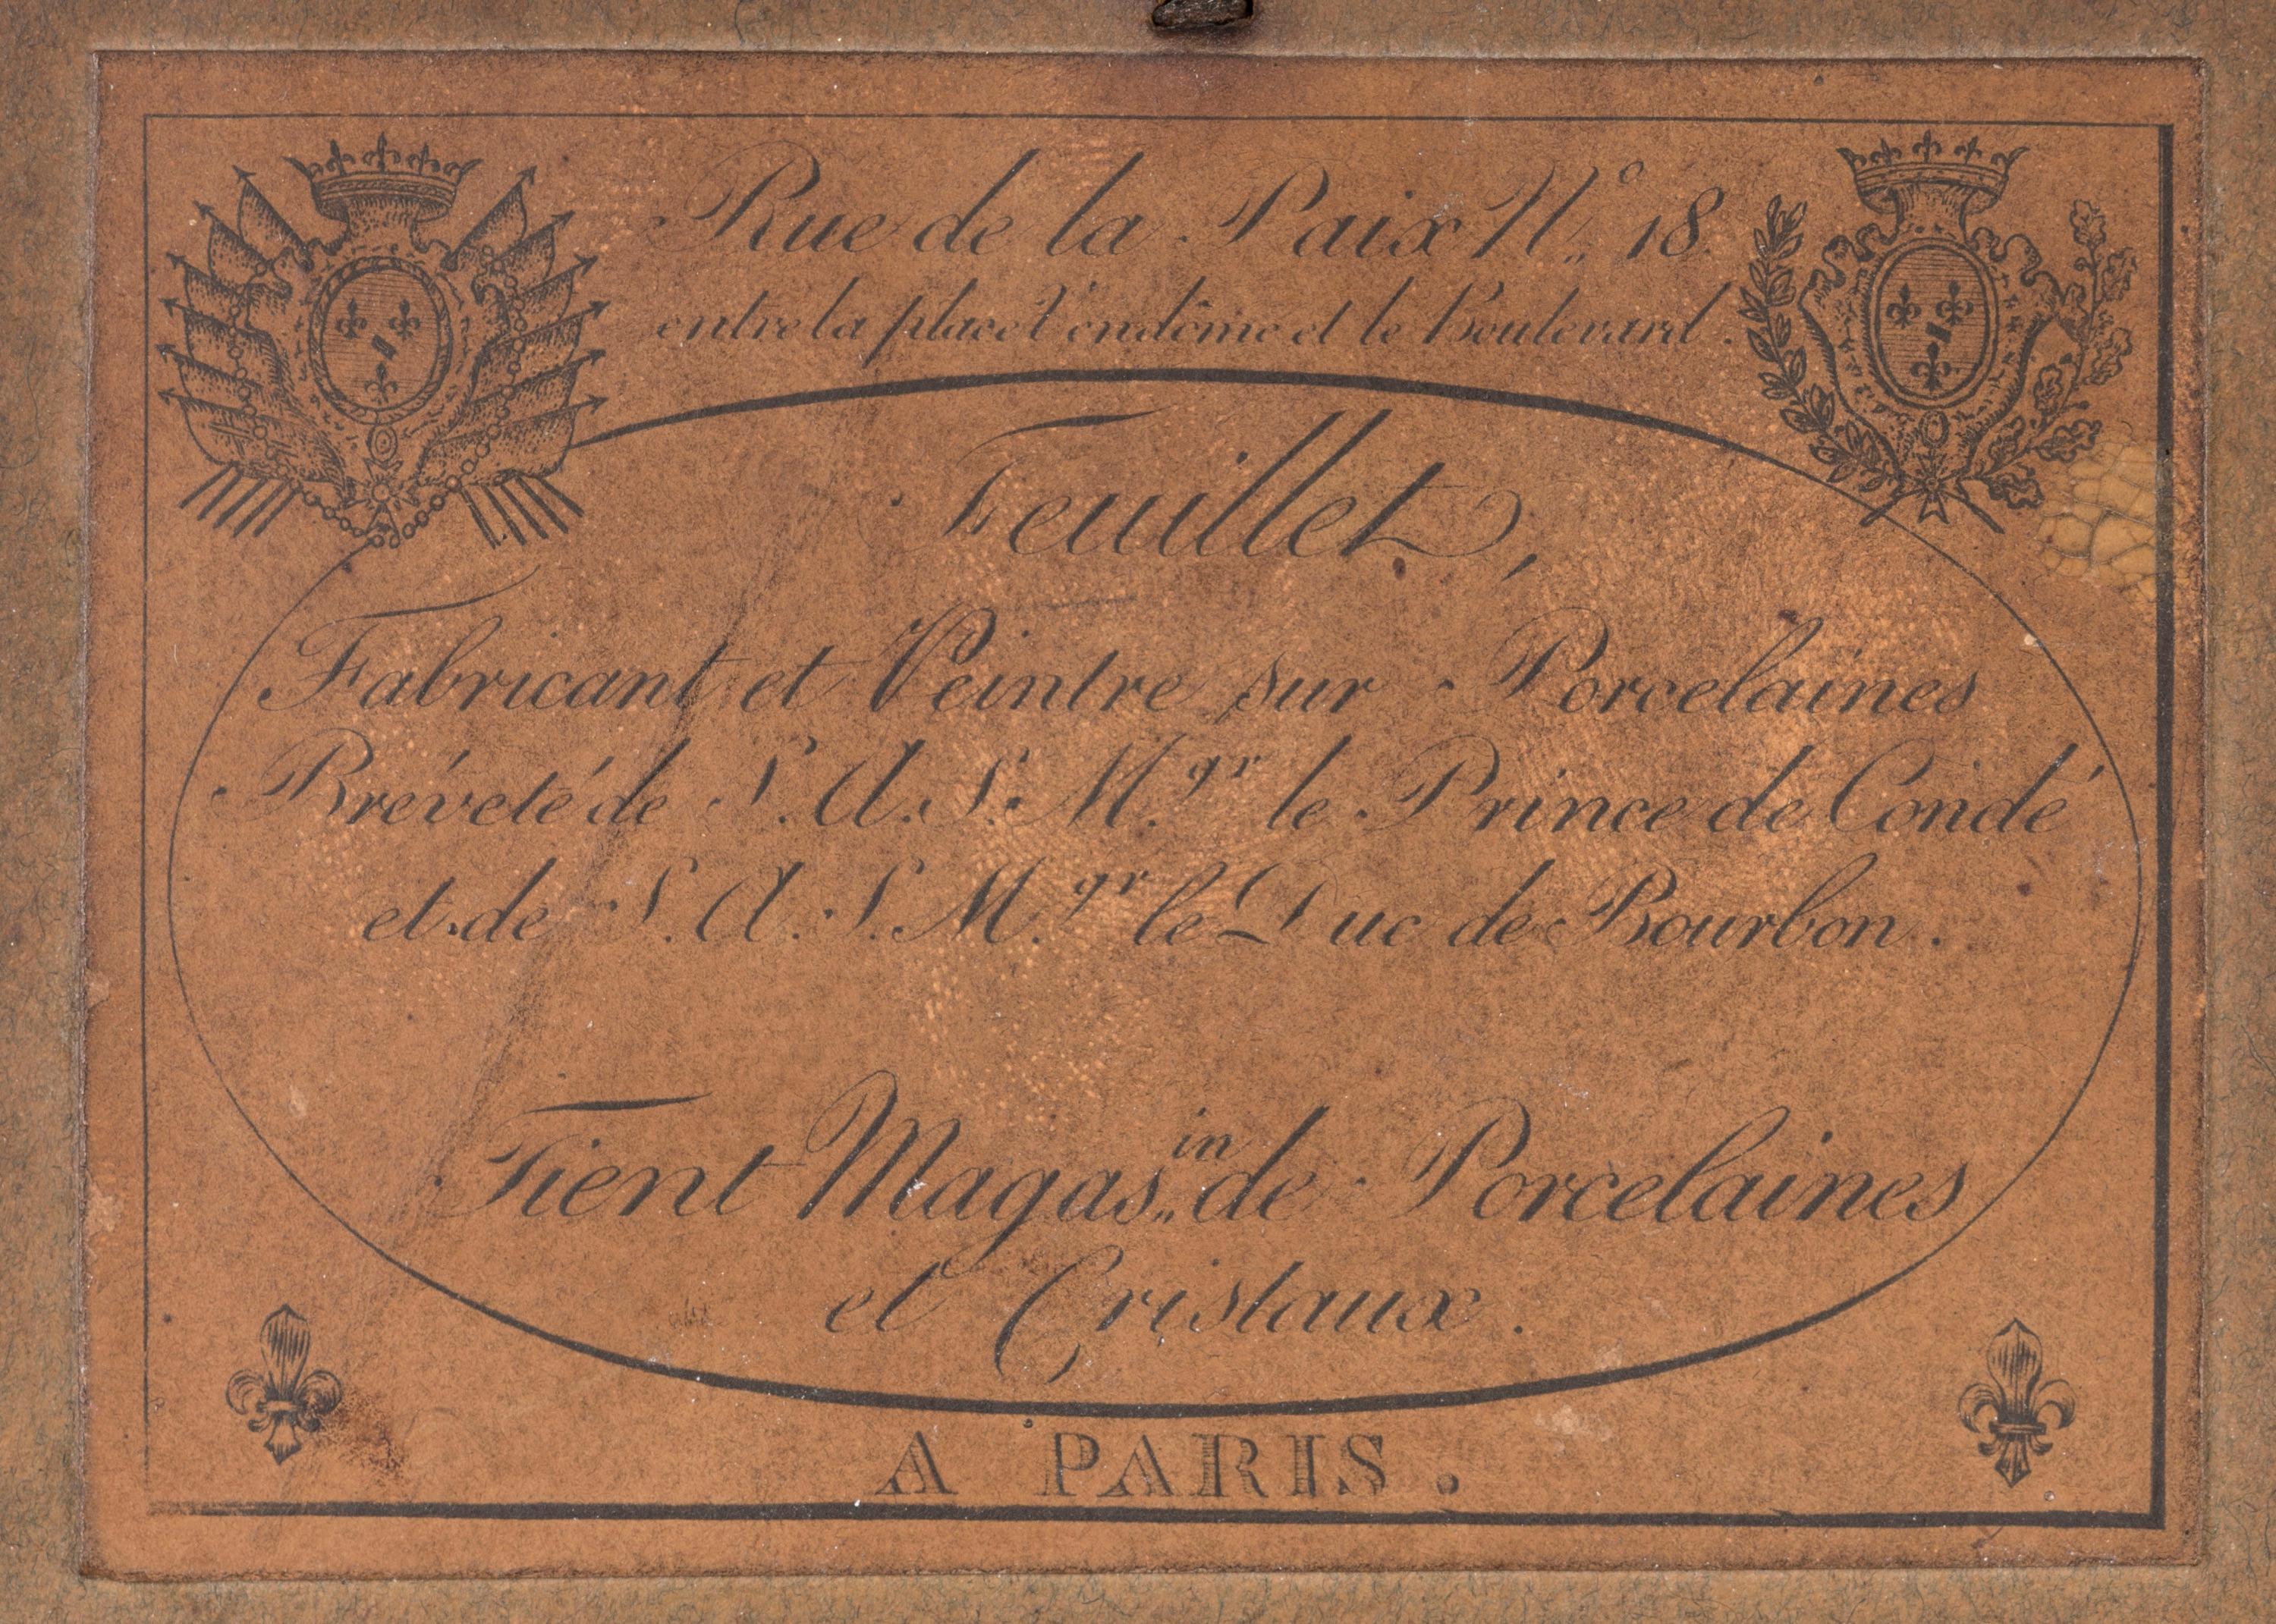 Rue de la Paix N.º 18.
entre la place Vendôme et le Boulevard.
Feuillet,
Fabricant et Peintre sur Porcelaines
Bréveté de S.A.S. M.gr le Prince de Condé
et de S.A.S. M.gr le Duc de Bourbon.
Tient Magas.in de Porcelaines
et Cristaux.
A PARIS.